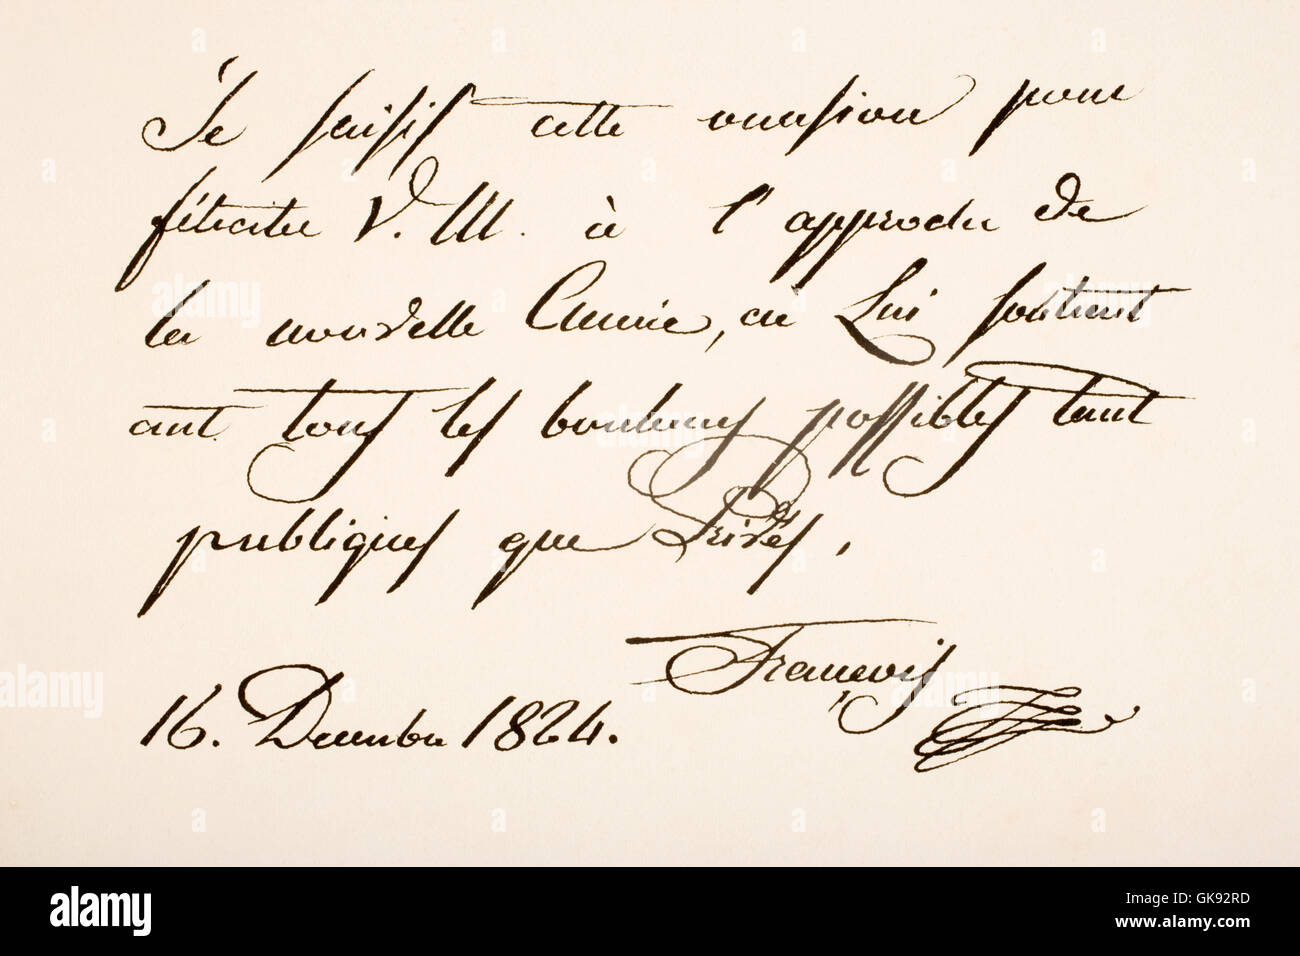 Je saisis cette occasion pour
féliciter V. M. à l'approche de
la nouvelle Année, en Lui souhaitant
tous les bonheurs possibles tant
publiques que Privés,
François
16. Decembre 1824.
alamy
alamy
Image ID: GK92RD
www.alamy.com